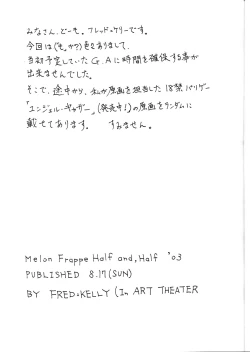 みなさん、どーも。フレッド・ケリーです。
今回は(も、か?)色々ありまして、
当初予定していたG.Aに時間を確保する事が
出来ませんでした。
そこで、途中から、私が原画を担当した18禁バリゲー
(発売中!)の原画をランダムに
載せてあります。 すみません。
Melon Frappe Half and, Half '03
PUBLISHED 8.17(SUN)
BY FRED・KELLY (In ART THEATER